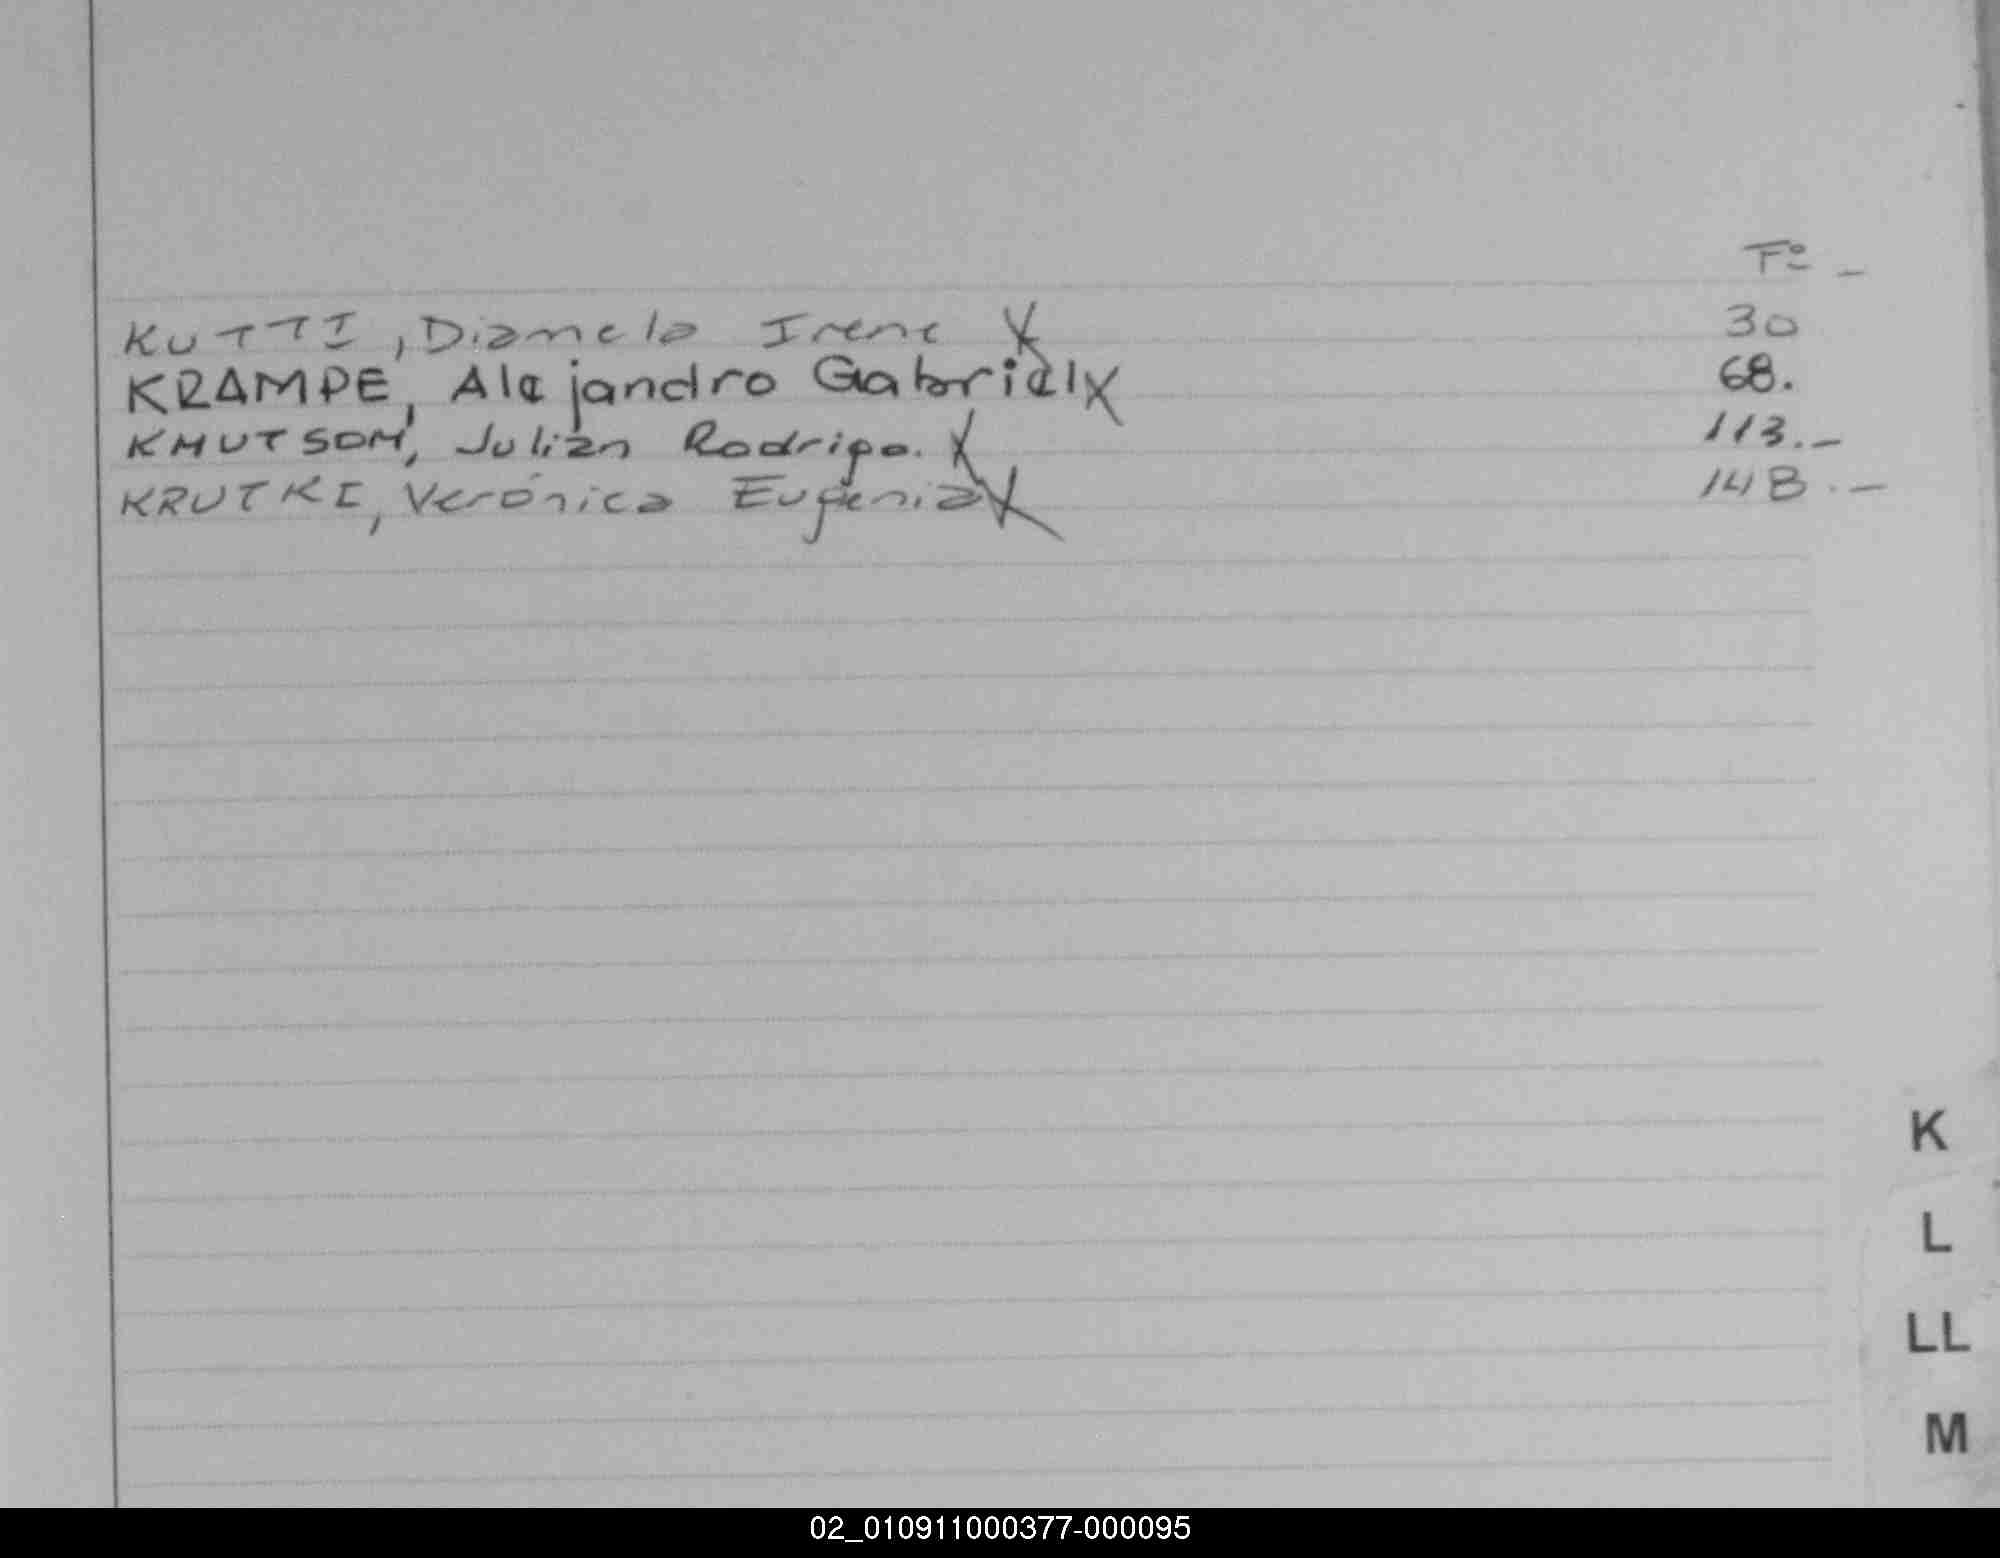 Fº -
KUTTI, Diamela Irene X 30
KRAMPE, Alejandro Gabriel X 68.
KNUTSON, Julián Rodrigo. X 113.-
KRUTKI, Verónica Eugenia X 148.-
K
L
LL
M
02_010911000377-000095